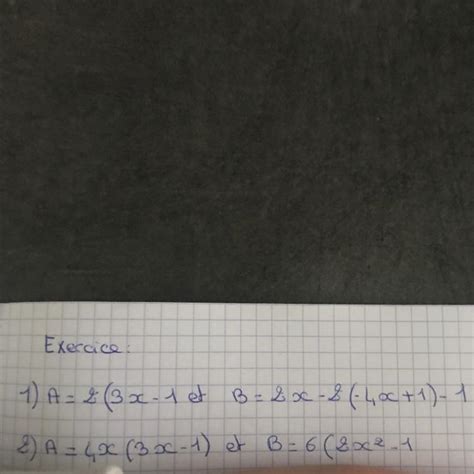 Exercice:
1) A = 2(3x - 1 et B = 2x - 2(-4x + 1) - 1
2) A = 4x(3x - 1) et B = 6(2x² - 1